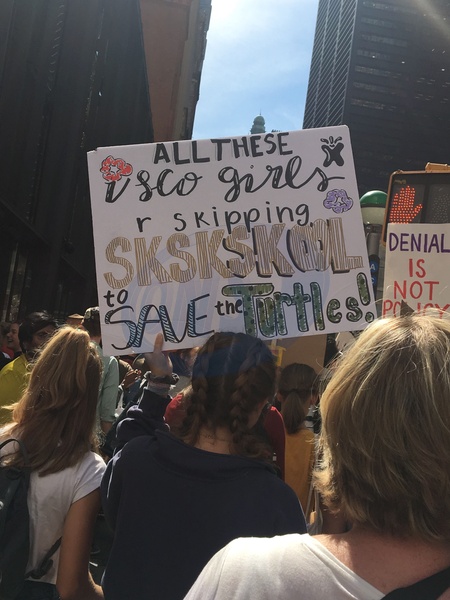 ALL THESE
vsco girls
r skipping
SKSKSKOOL
to SAVE the Turtles!
DENIAL
IS
NOT
POLICY